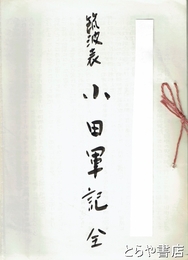 筑波表
小田軍記全
とらや書店